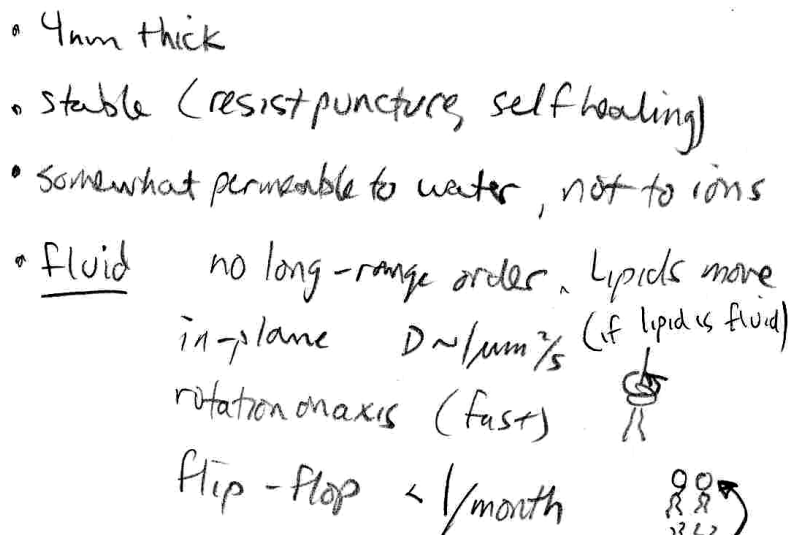 • 4nm thick
• stable (resist puncture, self healing)
• somewhat permeable to water, not to ions
• fluid no long-range order. Lipids move
in-plane D ~ 1 μm²/s (if lipid is fluid)
rotation on axis (fast)
flip-flop < 1/month